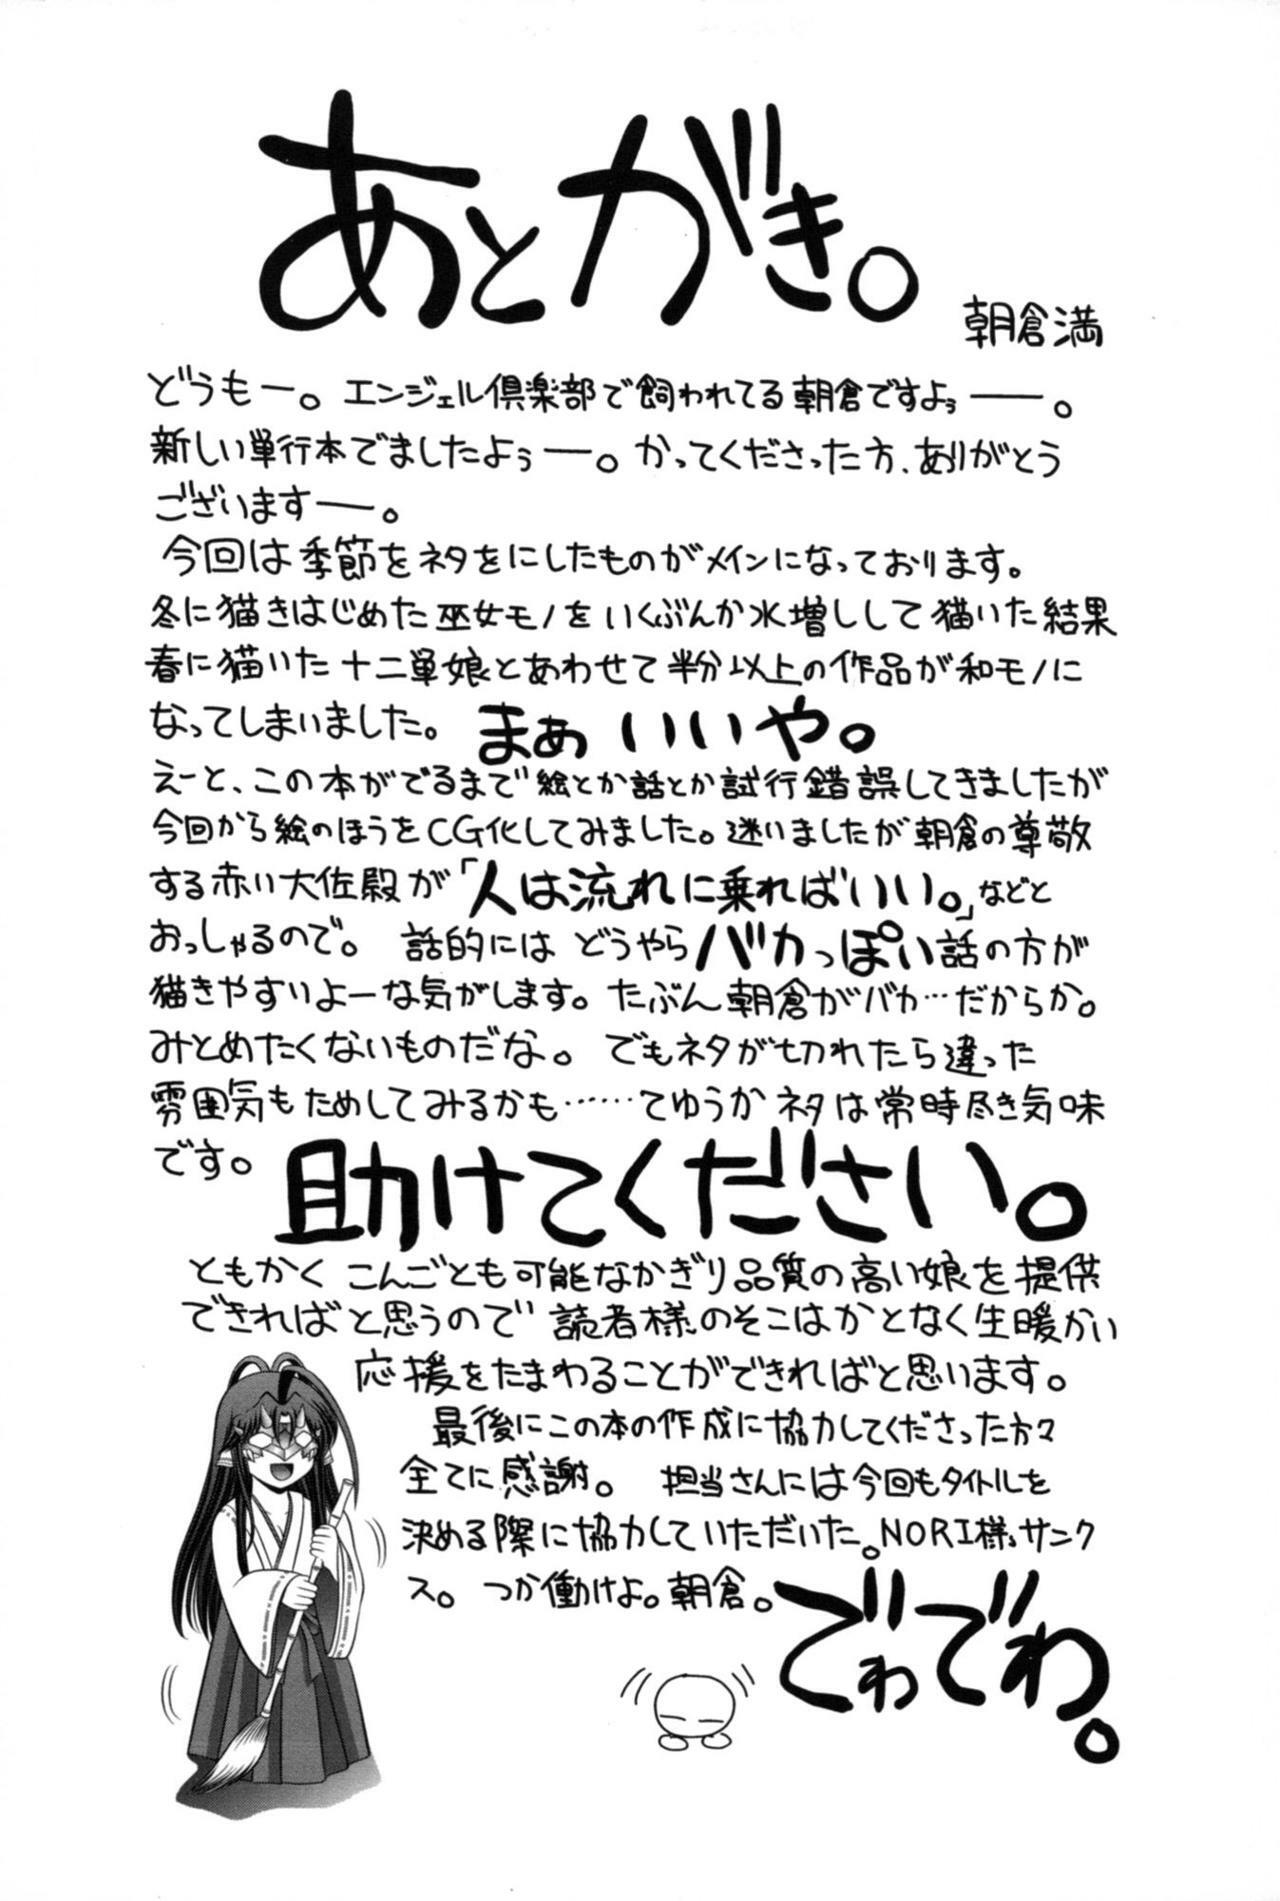 あとがき。
朝倉満
どうもー。エンジェル倶楽部で飼われてる朝倉ですよぅーー。
新しい単行本でましたよぅーー。かってくださった方、ありがとう
ございますーー。
今回は季節をネタをにしたものがメインになっております。
冬に猫きはじめた巫女モノをいくぶんか水増しして猫いた結果
春に猫いた十二単娘とあわせて半分以上の作品が和モノに
なってしまいました。まぁいいや。
えーと、この本がでるまで絵とか話とか試行錯誤してきましたが
今回から絵のほうをCG化してみました。迷いましたが朝倉の尊敬
する赤い大佐殿が「人は流れに乗ればいい。」などと
おっしゃるので。話的にはどうやらバカっぽい話の方が
猫きやすいよーな気がします。たぶん朝倉がバカ…だからか。
みとめたくないものだな。でもネタが切れたら違った
雰囲気もためしてみるかも……てゆうかネタは常時尽き気味
です。助けてください。
ともかくこんごとも可能なかぎり品質の高い娘を提供
できればと思うので読者様のそこはかとなく生暖かい
応援をたまわることができればと思います。
最後にこの本の作成に協力してくださった方々
全てに感謝。担当さんには今回もタイトルを
決める際に協力していただいた。NORI様サンク
ス。つか働けよ。朝倉。でわでわ。